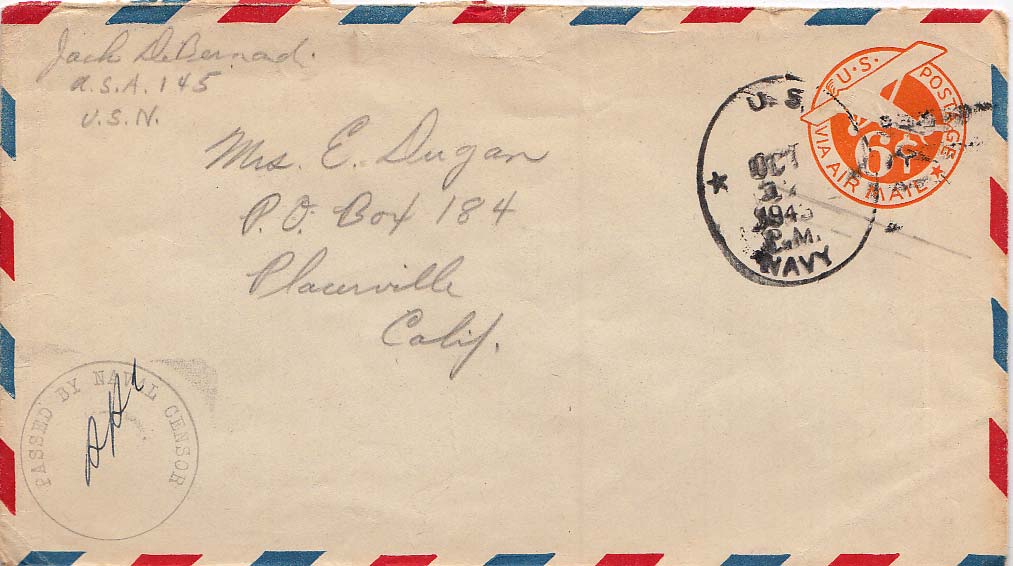 Jack DeBernad.
A.S.A. 145
U.S.N.
U.S. POSTAGE
VIA AIR MAIL
6¢
U. S.
OCT
1943
P.M.
NAVY
Mrs. E. Dugan
P.O. Box 184
Placerville
Calif.
PASSED BY NAVAL CENSOR